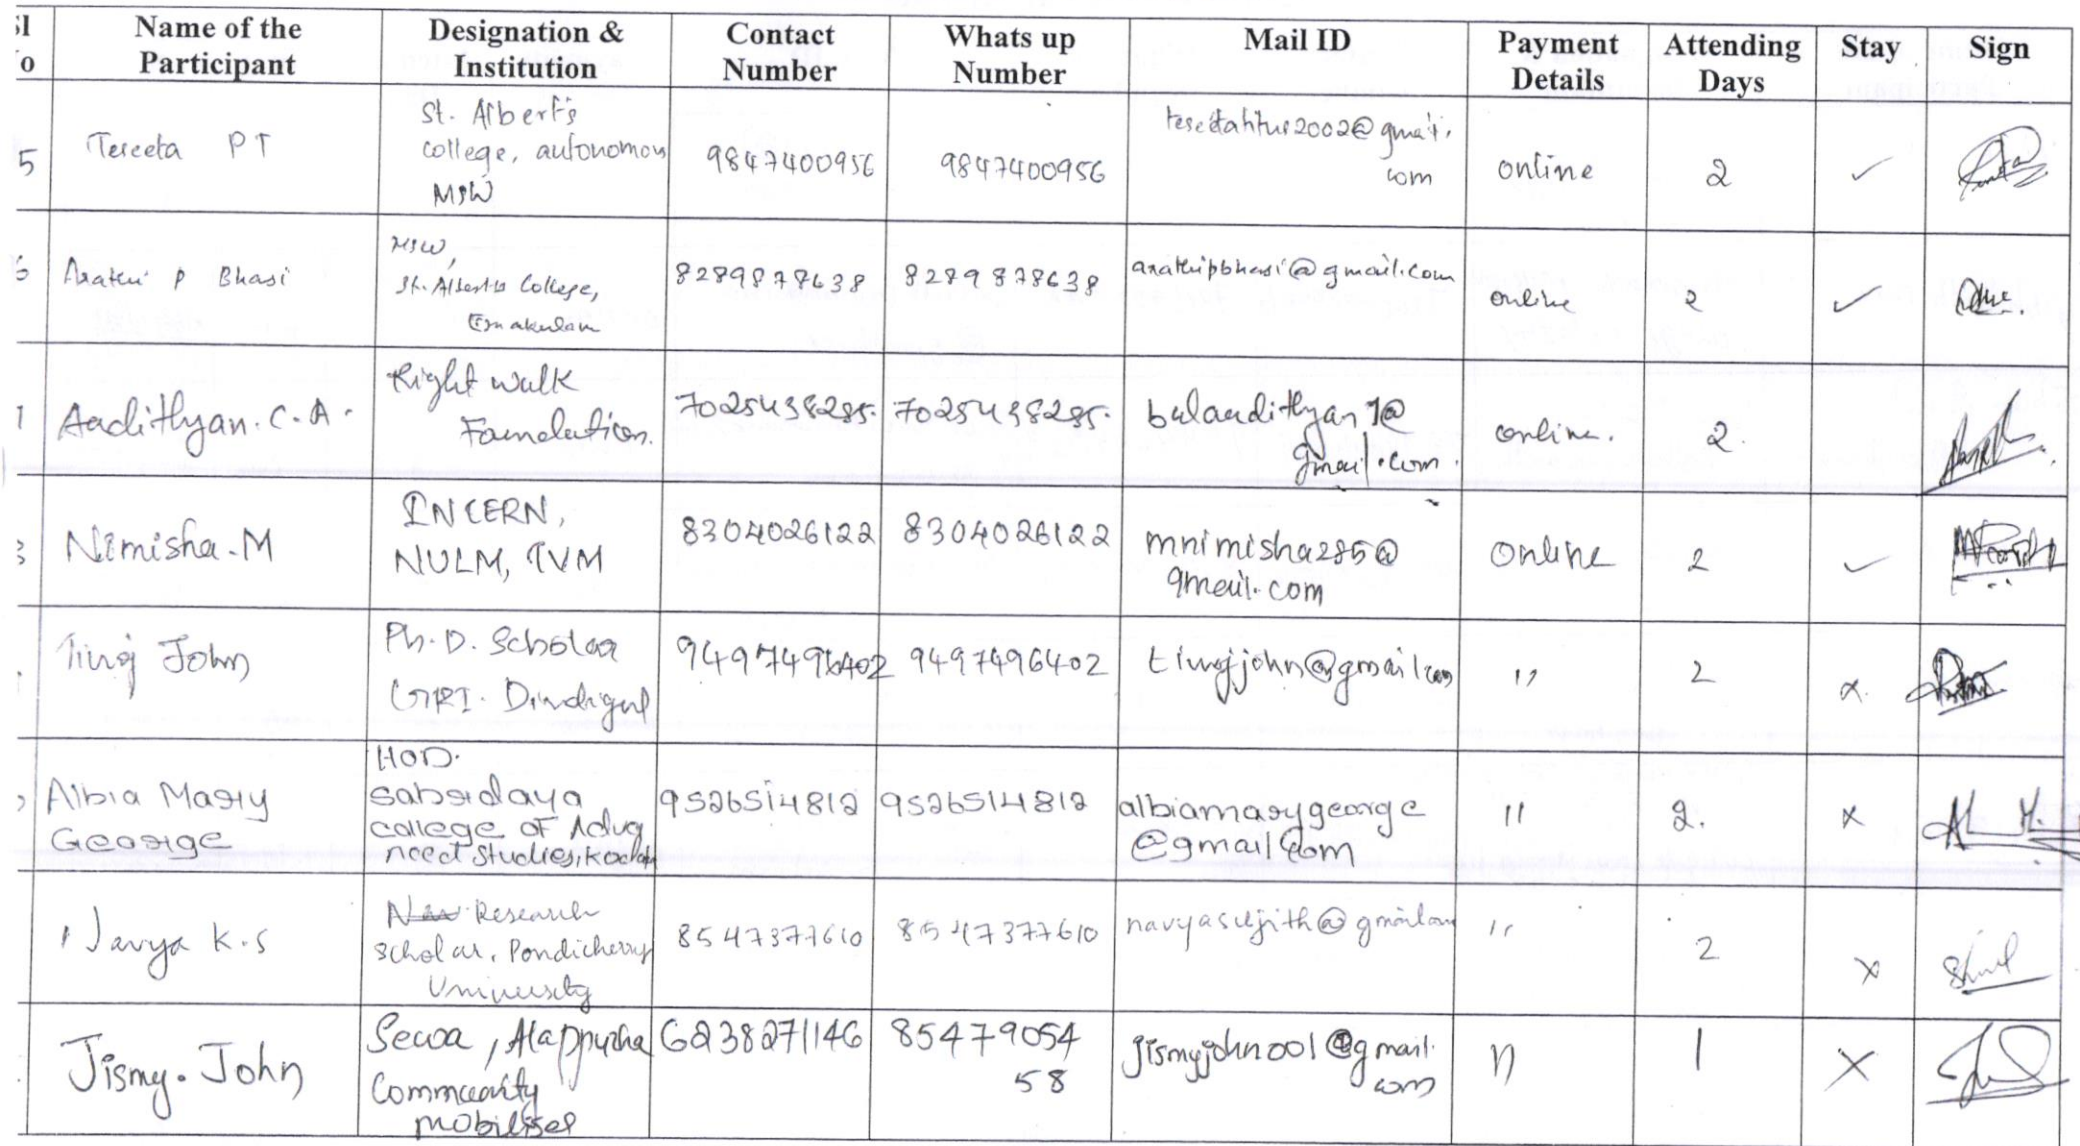 Sl No | Name of the Participant | Designation & Institution | Contact Number | Whats up Number | Mail ID | Payment Details | Attending Days | Stay | Sign
5 | Tereeta PT | St. Albert's college, autonomous MSW | 9847400956 | 9847400956 | gmail.com | online | 2 | ✓
Arathi P Bhasi | MSW, St. Albert's College, Ernakulam | 8289878638 | 8289878638 | arathipbhasi@gmail.com | online | 2 | ✓
Aadithyan.C.A. | Right walk Foundation. | 7025438285. | 7025438285. | balaadithyan1@gmail.com. | online. | 2.
Nimisha.M | INCERN, NULM, TVM | 8304026122 | 8304026122 | mnimisha285@gmail.com | online | 2 | ✓
John | Ph.D. Scholar GRI. Dindigul | 9497496402 | 9497496402 | " | 2 | x
Albia Mary George | HOD. sahrdaya college of Advanced studies, | 9526514812 | 9526514812 | albiamarygeorge@gmail.com | " | 2. | x
Navya K.S | Research Scholar, Pondicherry University | 8547377610 | 8547377610 | navyasujith@gmail.com | " | 2 | x
Jismy. John | Sewa, Alappuzha Community mobiliser | 6238271146 | 8547905458 | jismyjohn001@gmail.com | " | 1 | x